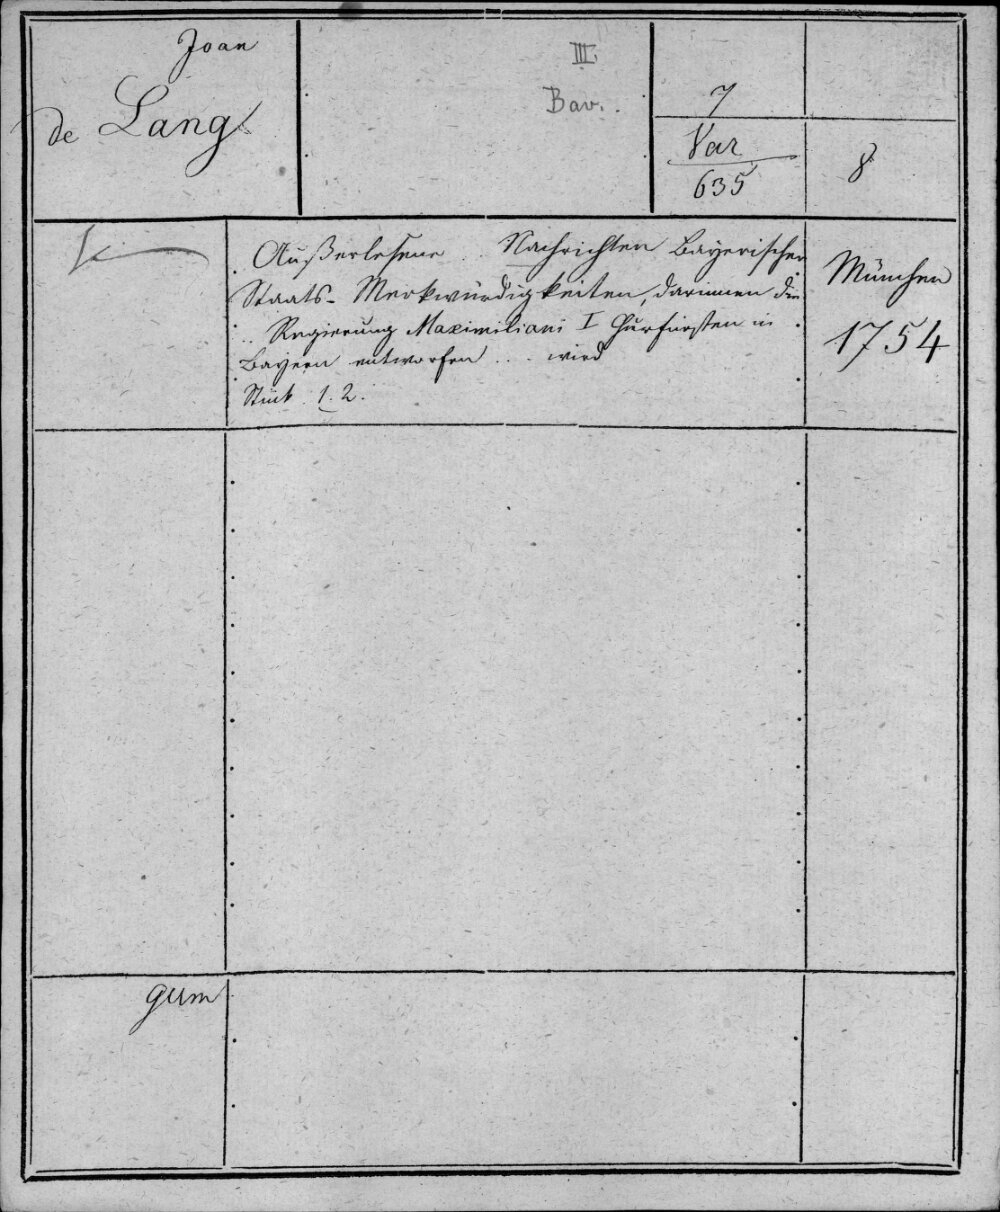 Joan
de Lang
III.
Bav.
7
Var
635
8
Außerlesene .. Nachrichten Bayerischer
Staats- Merkwürdigkeiten, darinnen die
.. Regierung Maximiliani I Churfürsten in
Bayern entworfen ... wird
Stück 1. 2.
München
1754